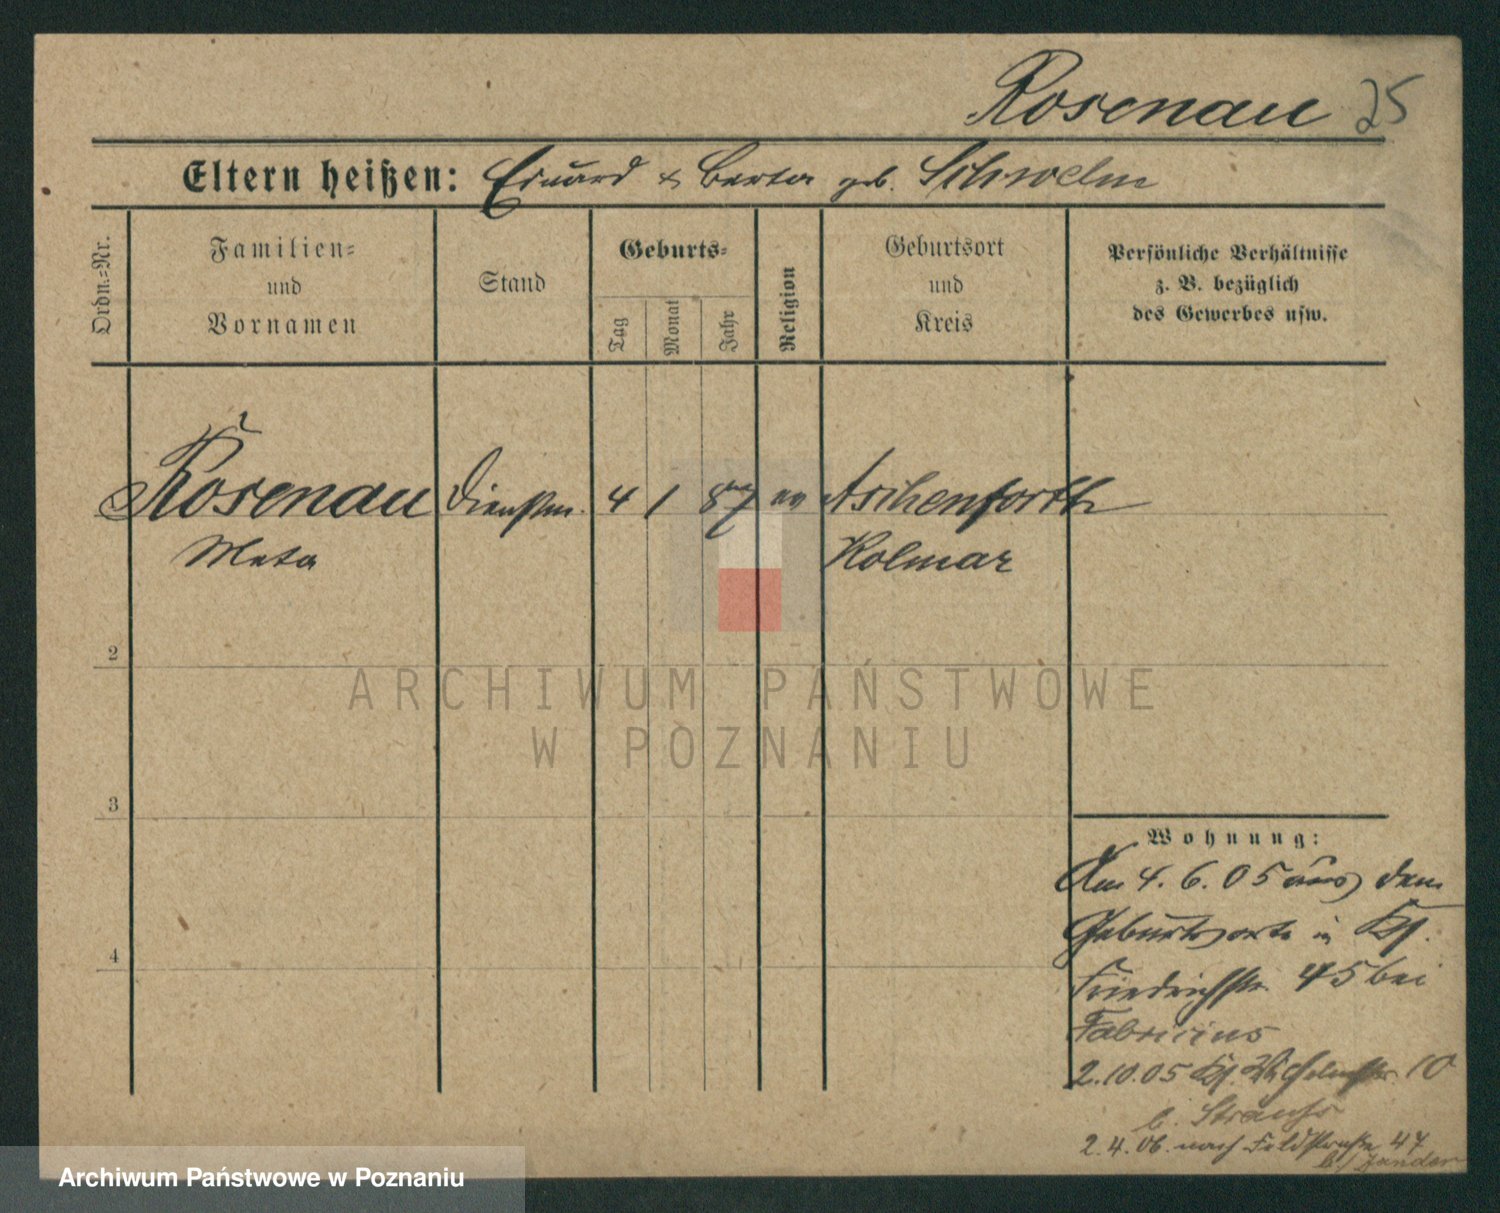 Rosenau 25
Eltern heißen: Eduard & Berta geb. Schwelm
Ordn.=Nr.
Familien=
und
Vornamen
Stand
Geburts=
Tag
Monat
Jahr
Religion
Geburtsort
und
Kreis
Persönliche Verhältnisse
z. B. bezüglich
des Gewerbes usw.
Rosenau Dienstm. 4 1 87 ev Aschenforth
Meta Kolmar
2
3
4
Wohnung:
Am 4. 6. 05 aus dem
Geburtsorte in
Friedrichstr. 45 bei
Fabricius
2.10.05 Wilhelmstr. 10
b. Strauss
2.4.06. nach Feldstraße 47
b. Zander
ARCHIWUM PAŃSTWOWE
W POZNANIU
Archiwum Państwowe w Poznaniu